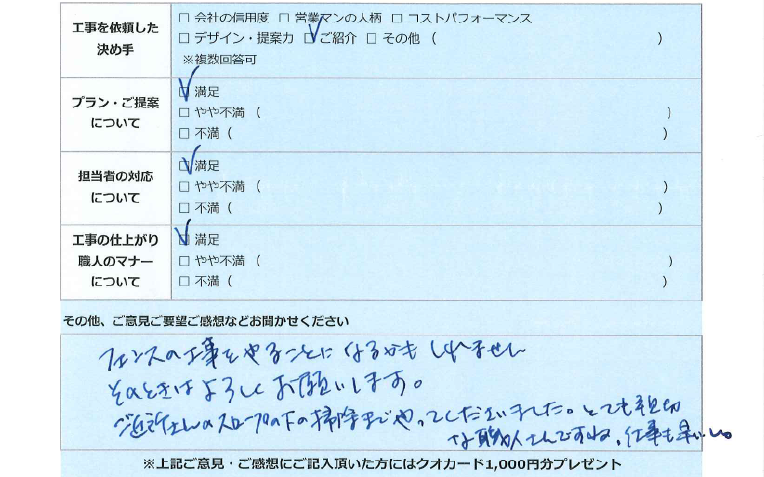 工事を依頼した
決め手
□ 会社の信用度 □ 営業マンの人柄 □ コストパフォーマンス
□ デザイン・提案力 ☑ ご紹介 □ その他 ( )
※複数回答可
プラン・ご提案
について
☑ 満足
□ やや不満 ( )
□ 不満 ( )
担当者の対応
について
☑ 満足
□ やや不満 ( )
□ 不満 ( )
工事の仕上がり
職人のマナー
について
☑ 満足
□ やや不満 ( )
□ 不満 ( )
その他、ご意見ご要望ご感想などお聞かせください
フェンスの工事をやることになるかもしれません
そのときはよろしくお願いします。
ご近所さんのスロープの下の掃除までやってくださいました。とても親切
な職人さんですね。仕事も早いし。
※上記ご意見・ご感想にご記入頂いた方にはクオカード1,000円分プレゼント